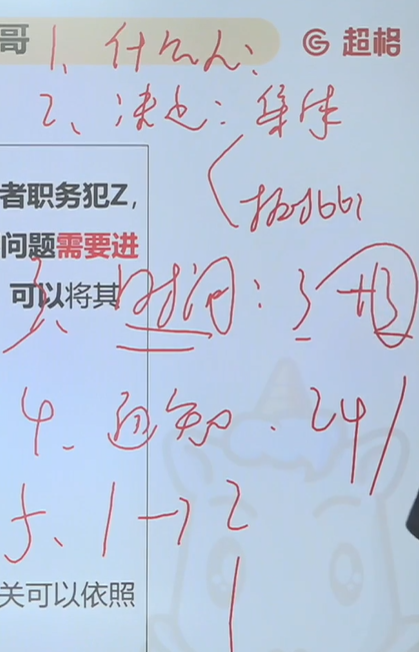 哥 超格
1、什么人:
2、决定:集体
报
者职务犯Z,
问题需要进
可以将其
3、时间:3+3
4、通知、24
5、1→2
关可以依照